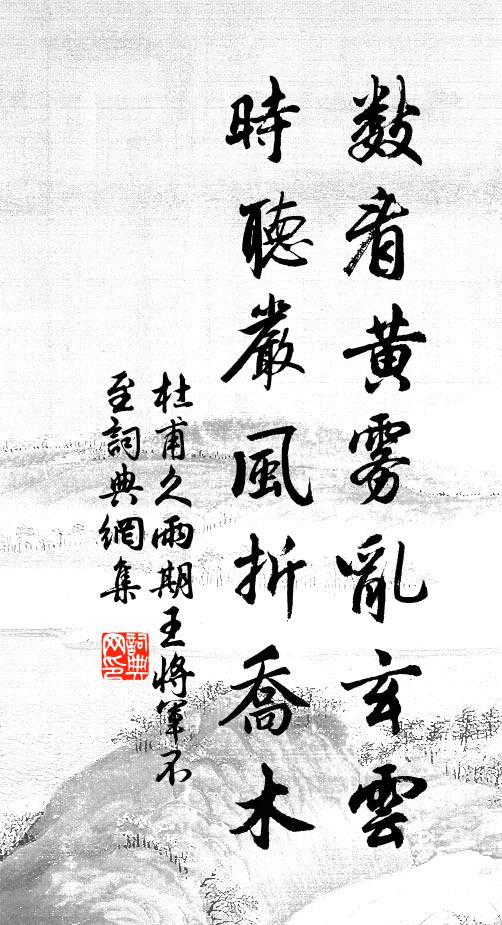 数看黄雾亂玄雲
時聽嚴風折喬木
杜甫久雨期王將軍不
至詞典網集
詞典
网印